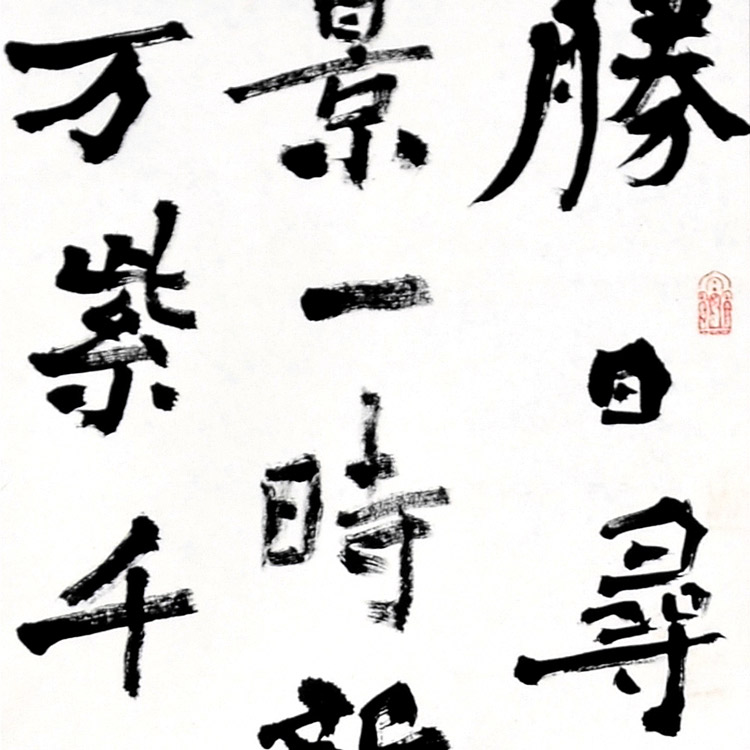 勝日尋
景一時
万紫千